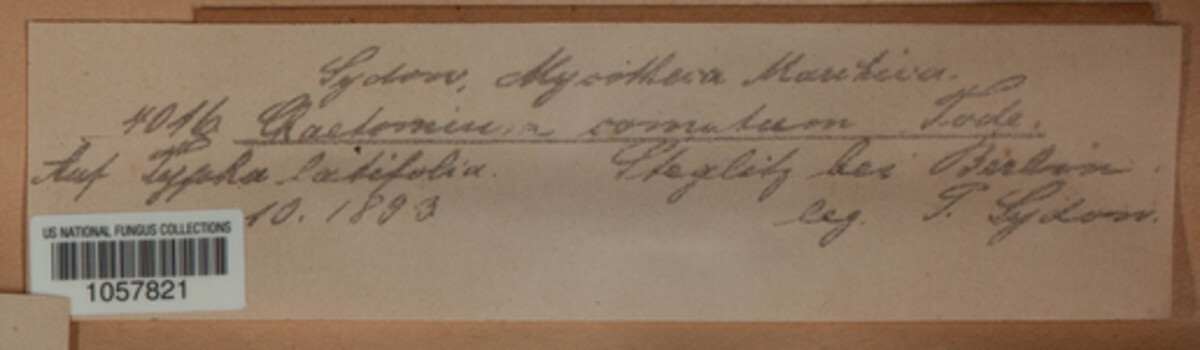 Sydow, Mycotheca Marchica.
4016 Chaetomium comatum Tode.
Auf Typha latifolia. Steglitz bei Berlin.
10. 1893 leg. P. Sydow.
US NATIONAL FUNGUS COLLECTIONS
1057821